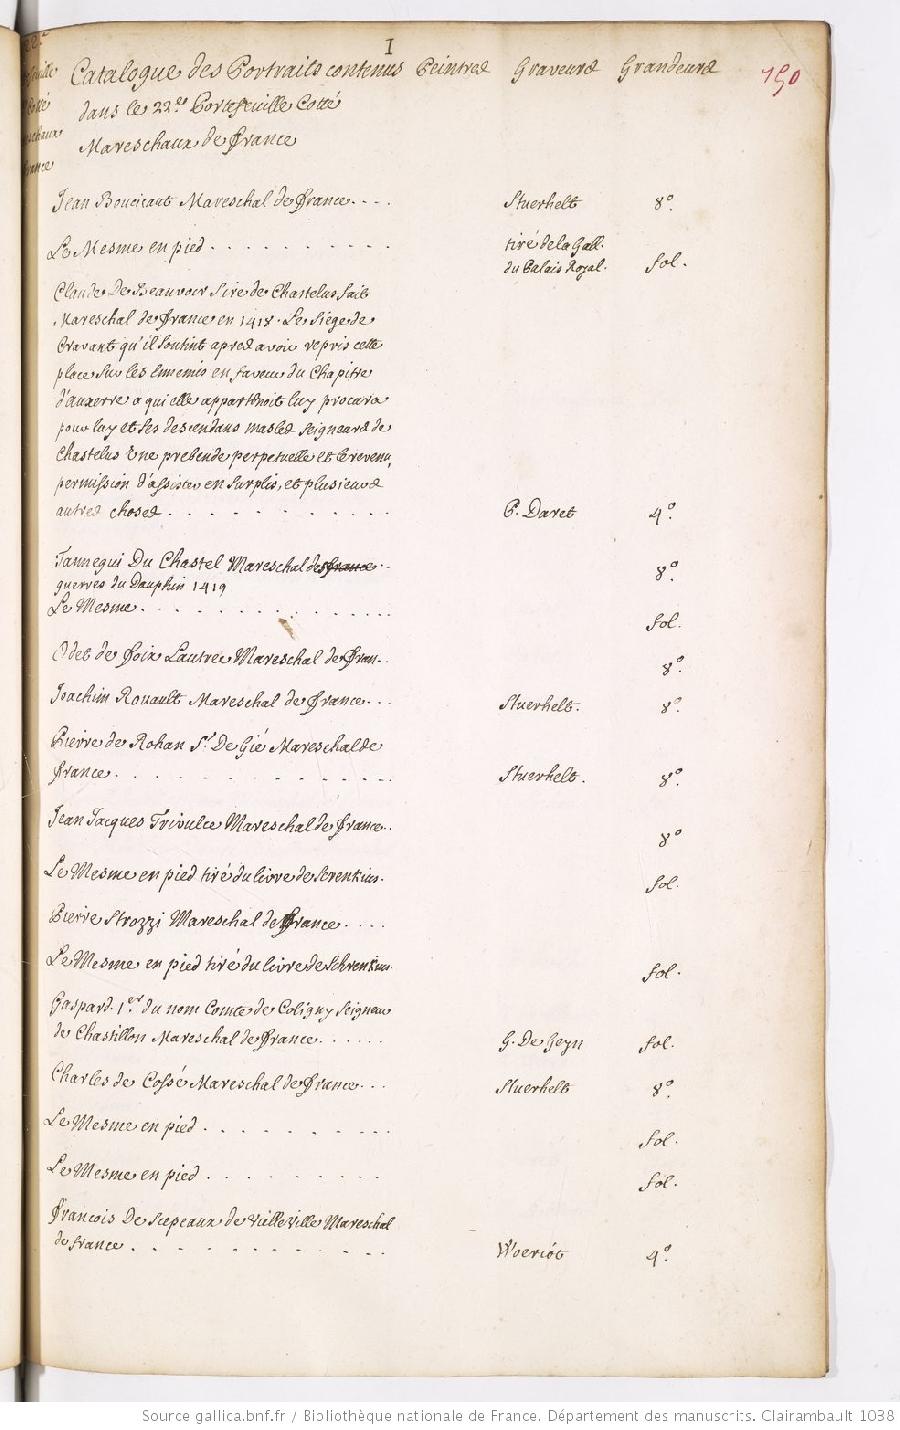 I
Catalogue des Portraits contenus Peintres Graveurs Grandeurs 190
dans le 22.e Portefeuille Cotté
Mareschaux de france
Jean Boucicaut Mareschal de france.... Stuerhelt 8.º
Le Mesme en pied .......... tiré de la Gall.
du Palais Royal. fol.
Claude De Beauvoir Sire de Chastelus fait
Mareschal de france en 1418. Le siége de
Cravant qu'il soutint apres avoir repris cette
place sur les Ennemis en faveur du Chapitre
d'auxerre a qui elle appartenoit luy procura
pour luy et ses descendans masles seigneurs de
Chastelus Une prebende perpetuelle et le revenu,
permission d'assister en surplis, et plusieurs
autres choses............ P. Daret 4.º
Tannegui Du Chastel Mareschal des france..
guerres du Dauphin 1419 8.º
Le Mesme........... fol.
Odet de foix Lautrec Mareschal de fran.. 8.º
Joachim Rouault Mareschal de france... Stuerhelt. 8.º
Pierre de Rohan Sr. De Gié Mareschal de
france............ Stuerhelt. 8.º
Jean Jacques Trivulce Mareschal de france.. 8.º
Le Mesme en pied tiré du livre de Srenkius. fol.
Pierre Strozzi Mareschal de france....
Le Mesme en pied tiré du livre de Schrenkius. fol.
Gaspard. 1.er du nom Comte de Coligny Seigneur
de Chastillon Mareschal de france...... G. De Geyn fol.
Charles de Cossé Mareschal de france... Stuerhelt 8.º
Le Mesme en pied ........ fol.
Le Mesme en pied ........ fol.
francois De Scepeaux de Vieilleville Mareschal
de france.......... Woeriót 4.º
Source gallica.bnf.fr / Bibliothèque nationale de France. Département des manuscrits. Clairambault 1038